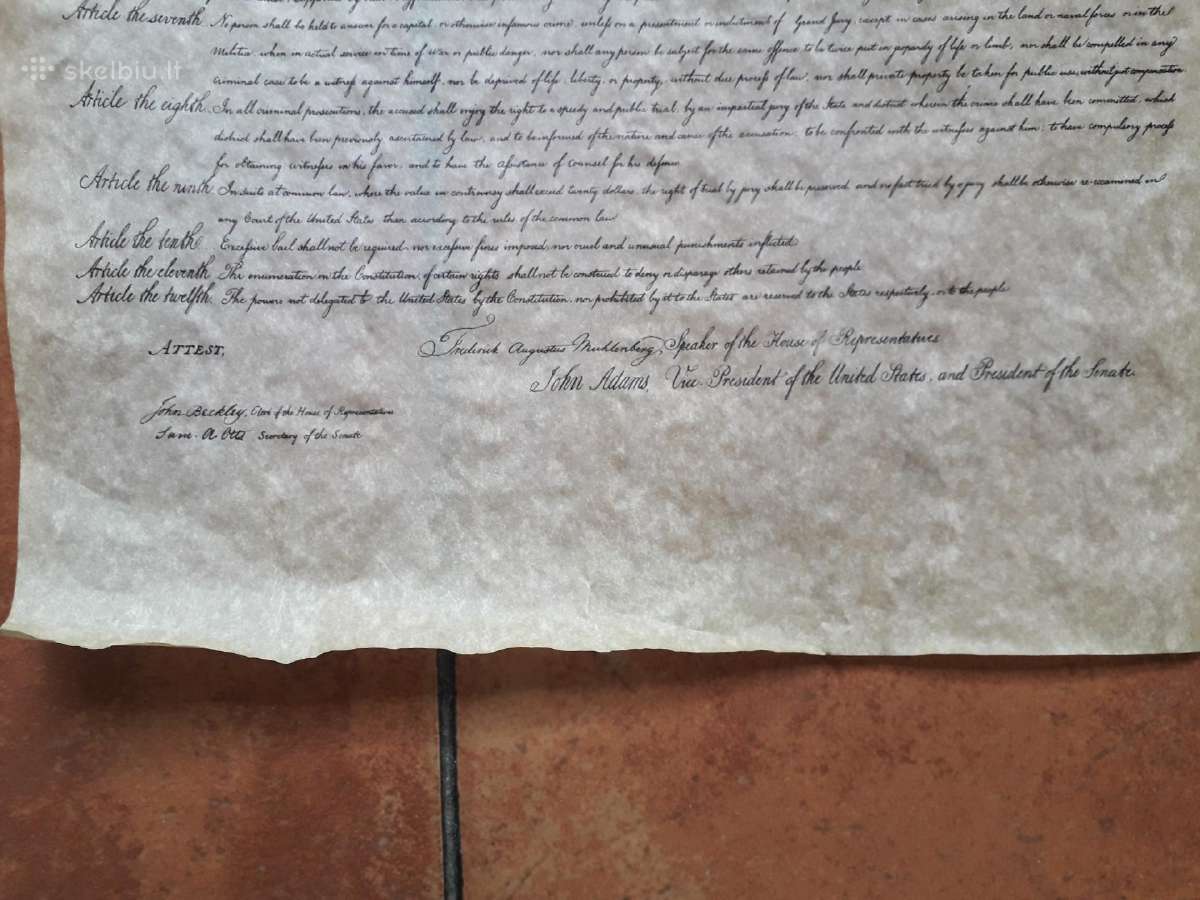 Article the seventh N person shall be held to answer for a capital, or otherwise infamous crime, unless on a presentment or indictment of Grand Jury, except in cases arising in the land or naval forces or in the
Militia, when in actual service in time of War or public danger, nor shall any person be subject for the same offence to be twice put in jeopardy of life or limb, nor shall be compelled in any
skelbiu.lt
criminal case to be a witness against himself, nor be deprived of life, liberty, or property, without due process of law, nor shall private property be taken for public use, without just compensation
Article the eighth. In all criminal prosecutions, the accused shall enjoy the right to a speedy and public trial, by an impartial jury of the State and district wherein the crime shall have been committed, which
district shall have been previously ascertained by law, and to be informed of the nature and cause of the accusation; to be confronted with the witnesses against him; to have compulsory process
for obtaining witnesses in his favor, and to have the assistance of counsel for his defence
Article the ninth. In suits at common law, where the value in controversy shall exceed twenty dollars, the right of trial by jury shall be preserved and no fact tried by a jury shall be otherwise re-examined in
any Court of the United States than according to the rules of the common law
Article the tenth. Excessive bail shall not be required, nor excessive fines imposed, nor cruel and unusual punishments inflicted.
Article the eleventh The enumeration in the Constitution, of certain rights, shall not be construed to deny or disparage others retained by the people
Article the twelfth. The powers not delegated to the United States by the Constitution, nor prohibited by it to the States are reserved to the States respectively, or to the people
ATTEST,
Frederick Augustus Muhlenberg, Speaker of the House of Representatives
John Adams, Vice-President of the United States, and President of the Senate.
John Beckley, Clerk of the House of Representatives
Sam. A. Otis Secretary of the Senate